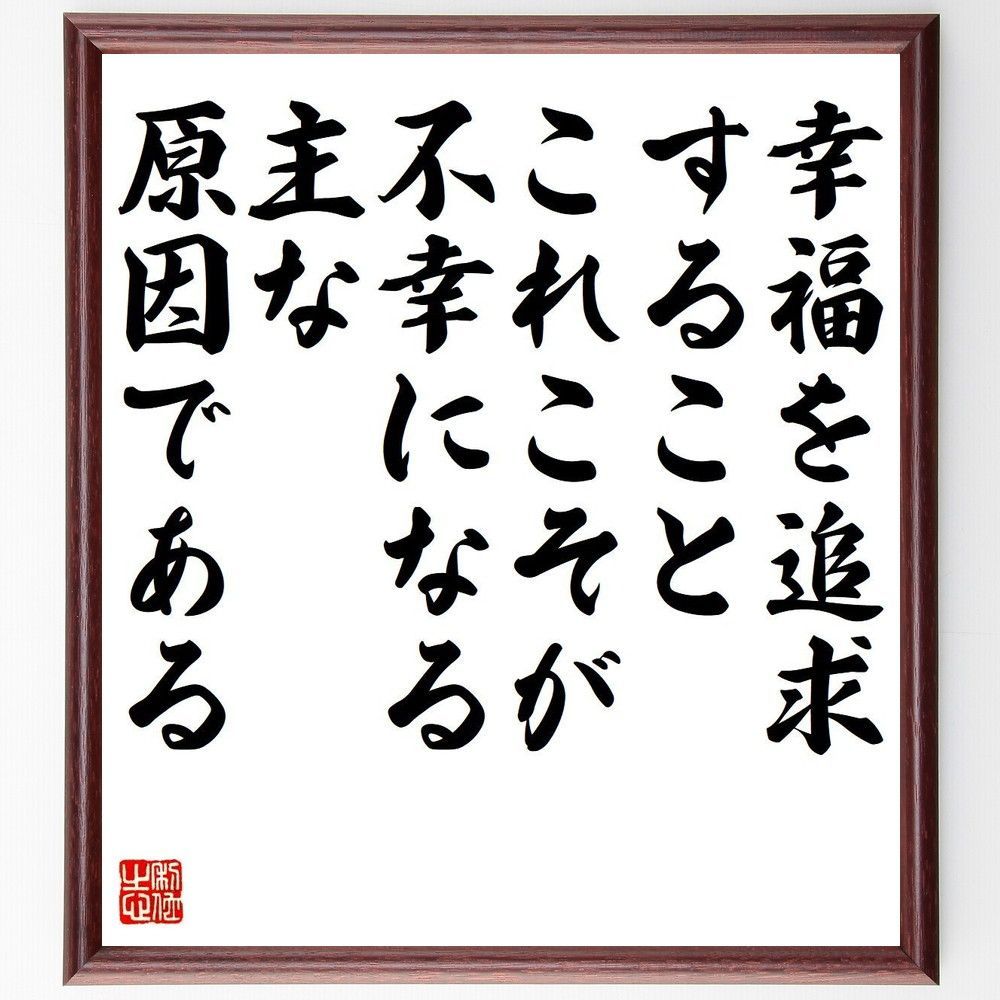 幸福を追求
すること
これこそが
不幸になる
主な
原因である